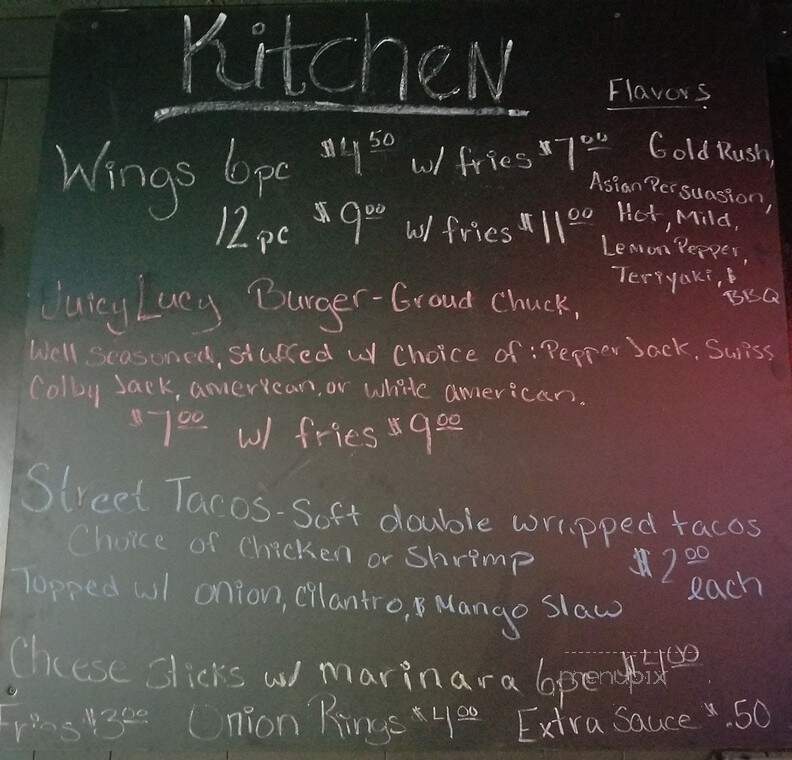 Kitchen
Flavors
Wings 6pc $4.50 w/ fries $7.00
12pc $9.00 w/ fries $11.00
Gold Rush,
Asian Persuasion,
Hot, Mild,
Lemon Pepper,
Teriyaki, &
BBQ
Juicy Lucy Burger - Groud Chuck,
Well seasoned, stuffed w/ choice of: Pepper Jack, Swiss
Colby Jack, american, or white american.
$7.00 w/ fries $9.00
Street Tacos - Soft double wrapped tacos
Choice of Chicken or Shrimp $2.00
Topped w/ onion, cilantro, & Mango Slaw each
Cheese sticks w/ marinara 6pc $4.00
menupix
Fries $3.00 Onion Rings $4.00 Extra Sauce $.50